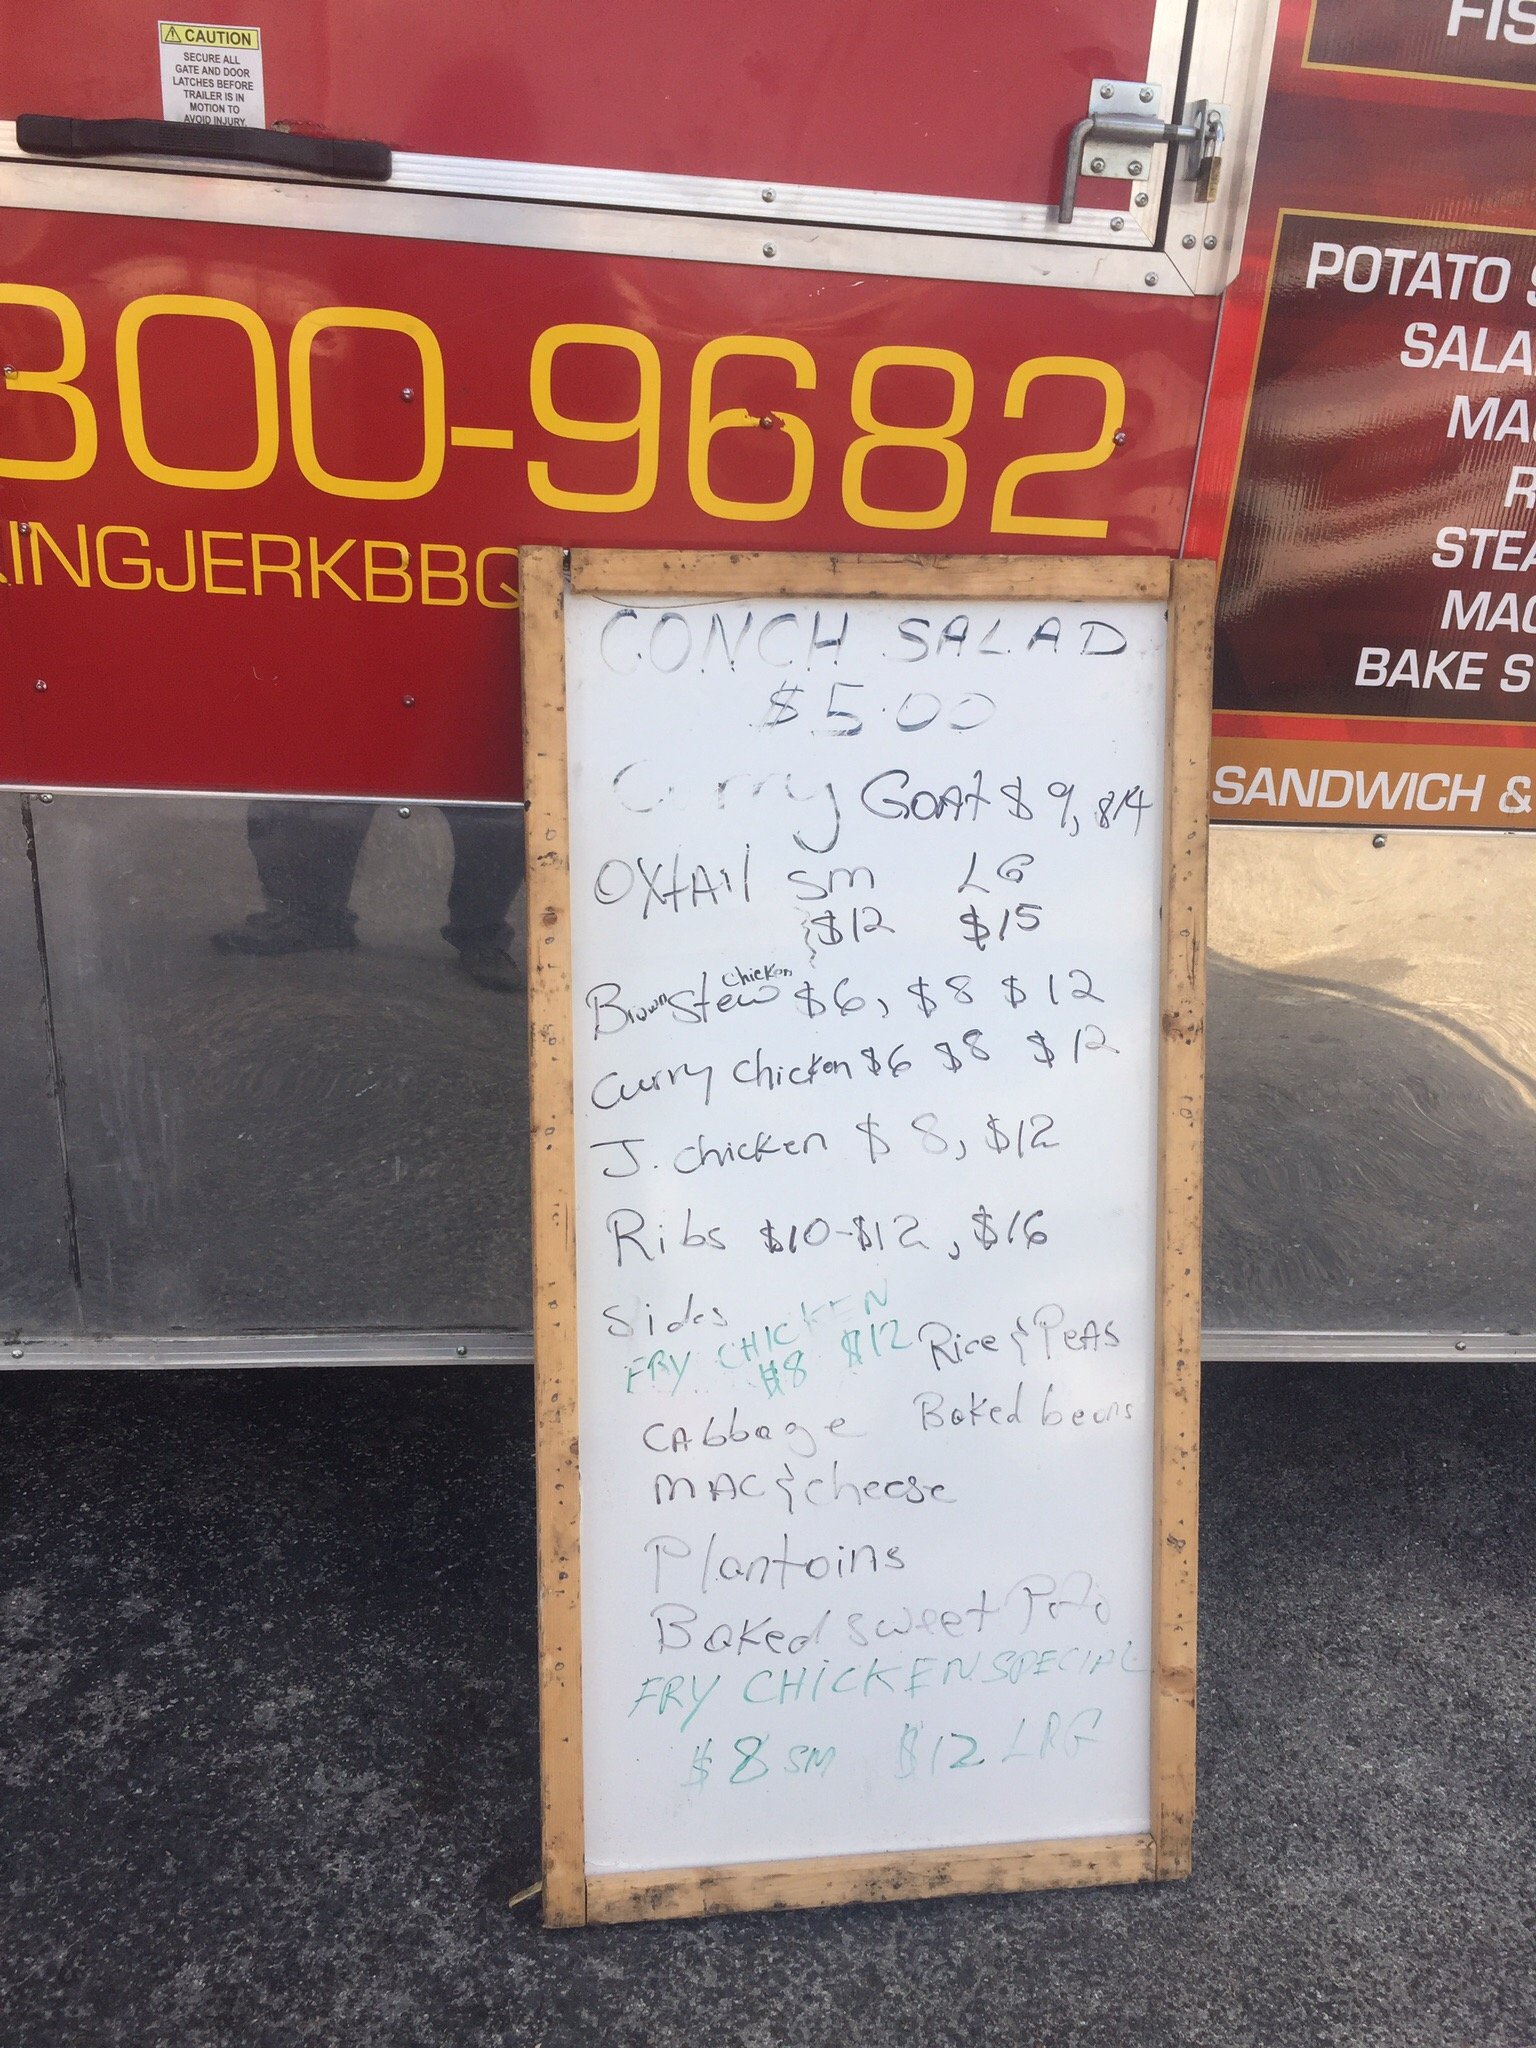 CAUTION
SECURE ALL
GATE AND DOOR
LATCHES BEFORE
TRAILER IS IN
MOTION TO
AVOID INJURY.
300-9682
INGJERKBBQ
FIS
POTATO S
SALA
MA
R
STEA
MAC
BAKE S
SANDWICH &
CONCH SALAD
$5.00
Curry GOAT $9, $14
OXTAIL SM LG
$12 $15
Brown Stew chicken $6, $8 $12
Curry chicken $6 $8 $12
J. chicken $8, $12
Ribs $10-$12, $16
Sides
FRY CHICKEN
$8 $12
Rice & PeAS
CAbbage Baked beans
MAC & cheese
Plantains
Baked sweet Poto
FRY CHICKEN SPECIAL
$8 SM $12 LRG